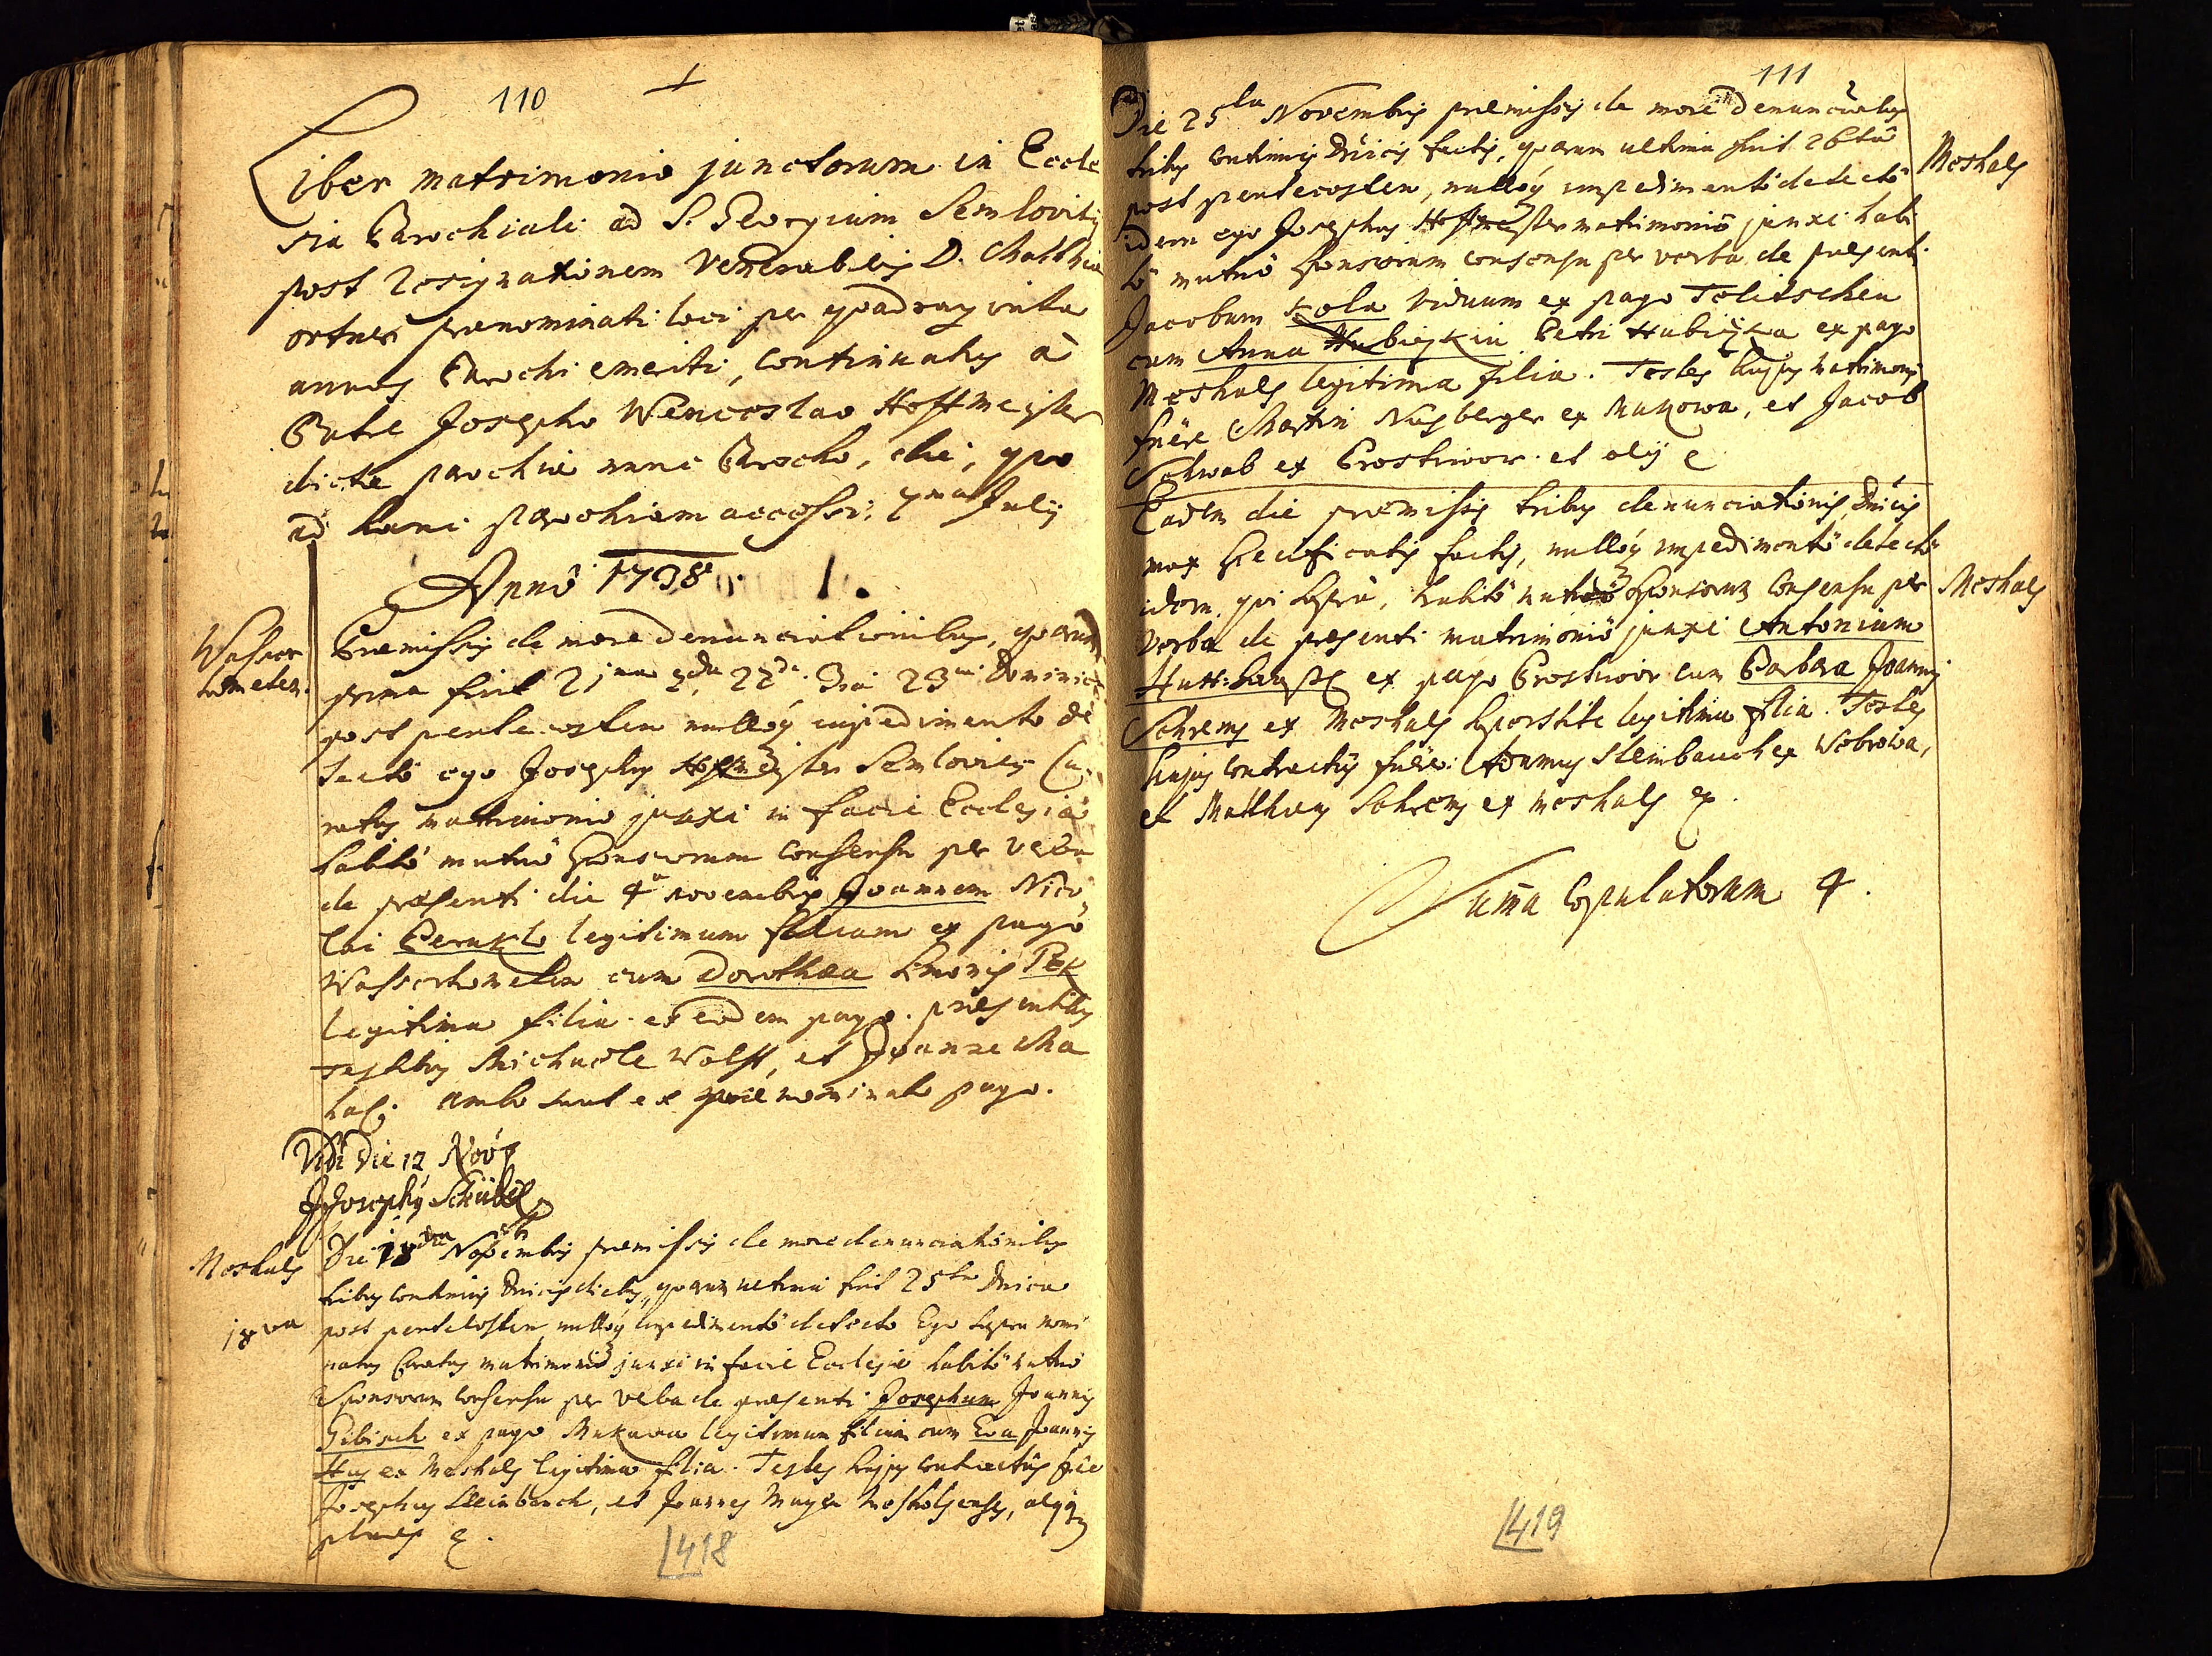 110
Liber matrimonio junctorum in Eccle
sia Parochiali ad S. Georgium Semlovitij
post resignationem Venerabilis D. Matthia
ortner prenominati loci per quadraginta
annos Parochi emeriti, continuatus à
Patre Josepho Wenceslao Hoffmeister
dictae parochiae nunc Parocho, die, quo
ad hanc parochiam accessi: 7ma Julij
Anno 1738. 1.
Wasser
trometen.
Premissis de more denunciationibus, quarum
prima fuit 21ma 2da 22da 3tia 23tia Dominica
post pentecosten nulloq impedimento de
tecto ego Josephus Hoffmeister Semloviens Cu
ratus matrimonio junxi in facie Ecclesiae
habito mutuo sponsorum consensu per verba
de presenti die 4ta novembris Joannem Nico
lai Pernkl legitimum filium ex pago
Wassertrometen cum Dorothaea Simonis Pek
legitima filia ex eodem pago. presentibus
testibus Michaele Wolff, et Joanne Ma
ambo sunt ex prae nominato pago.
Vidi die 12 Nov
Josephus
Moshals
18va
Die 18va Novembris premissis de more denunciationibus
tribus continuis Dnicis dictis, quarum ultima fuit 25ta Dnica
post pentecosten nulloq impedimentô detecto Ego supra nomi
natus Curatus matrimonio junxi in facie Ecclesiae habito mutuo
Sponsorum consensu per verba de presenti Josephum Joannis
Gibisch ex pago Mukowa legitimum filium cum Eva Joannis
Hus ex Moshals legitima filia. Testes hujus contractûs fûe
Josephus Steinbauch, et Joannes Mayer Mosholsenses, alijq
plures
1418
111
Die 25ta Novembris premissis de more denunciatibus
tribus continuis Dnicis factis, quarum ultima fuit 26ta
post pentecosten, nulloq impedimentô detecto
Moshals
idem ego Josephus Hoffmeister matrimoniô junxi habi
tô mutuô sponsorum consensu per verba de presenti
Jacobum Kola viduum ex pago Tolitschen
cum Anna Hubiczkin Petri Hubiczka ex pago
Moshals legitima filia. Testes hujus matrimonij
fuêre Martin Nusberger ex Mukowa, et Jacob
Schwab ex Prostiwor. et alij
Eadem die premissis tribus denunciationis, Dnicis
mox specificatis factis, nulloq impedimentô detectô
idem, qui supra, habitô mutuô sponsorum consensu per
Moshals
verba de presenti matrimoniô junxi Antonium
ex pago Prostiwor cum Barbara Joannis
Schrems ex Moshals superstite legitima filia. Testes
hujus contractûs fuêre: Steinbauch ex Wobrowa,
et Matthias Schrems ex Moshals
Suma Copulatorum 4.
1419